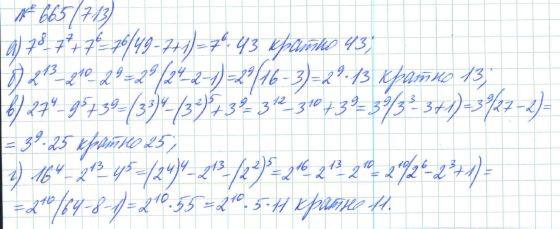 № 665 (713)
а) 7⁸ - 7⁷ + 7⁶ = 7⁶(49 - 7 + 1) = 7⁶ · 43 кратно 43;
б) 2¹³ - 2¹⁰ - 2⁹ = 2⁹(2⁴ - 2 - 1) = 2⁹(16 - 3) = 2⁹ · 13 кратно 13;
в) 27⁴ - 9⁵ + 3⁹ = (3³)⁴ - (3²)⁵ + 3⁹ = 3¹² - 3¹⁰ + 3⁹ = 3⁹(3³ - 3 + 1) = 3⁹(27 - 2) =
= 3⁹ · 25 кратно 25;
г) 16⁴ - 2¹³ - 4⁵ = (2⁴)⁴ - 2¹³ - (2²)⁵ = 2¹⁶ - 2¹³ - 2¹⁰ = 2¹⁰(2⁶ - 2³ + 1) =
= 2¹⁰(64 - 8 - 1) = 2¹⁰ · 55 = 2¹⁰ · 5 · 11 кратно 11.